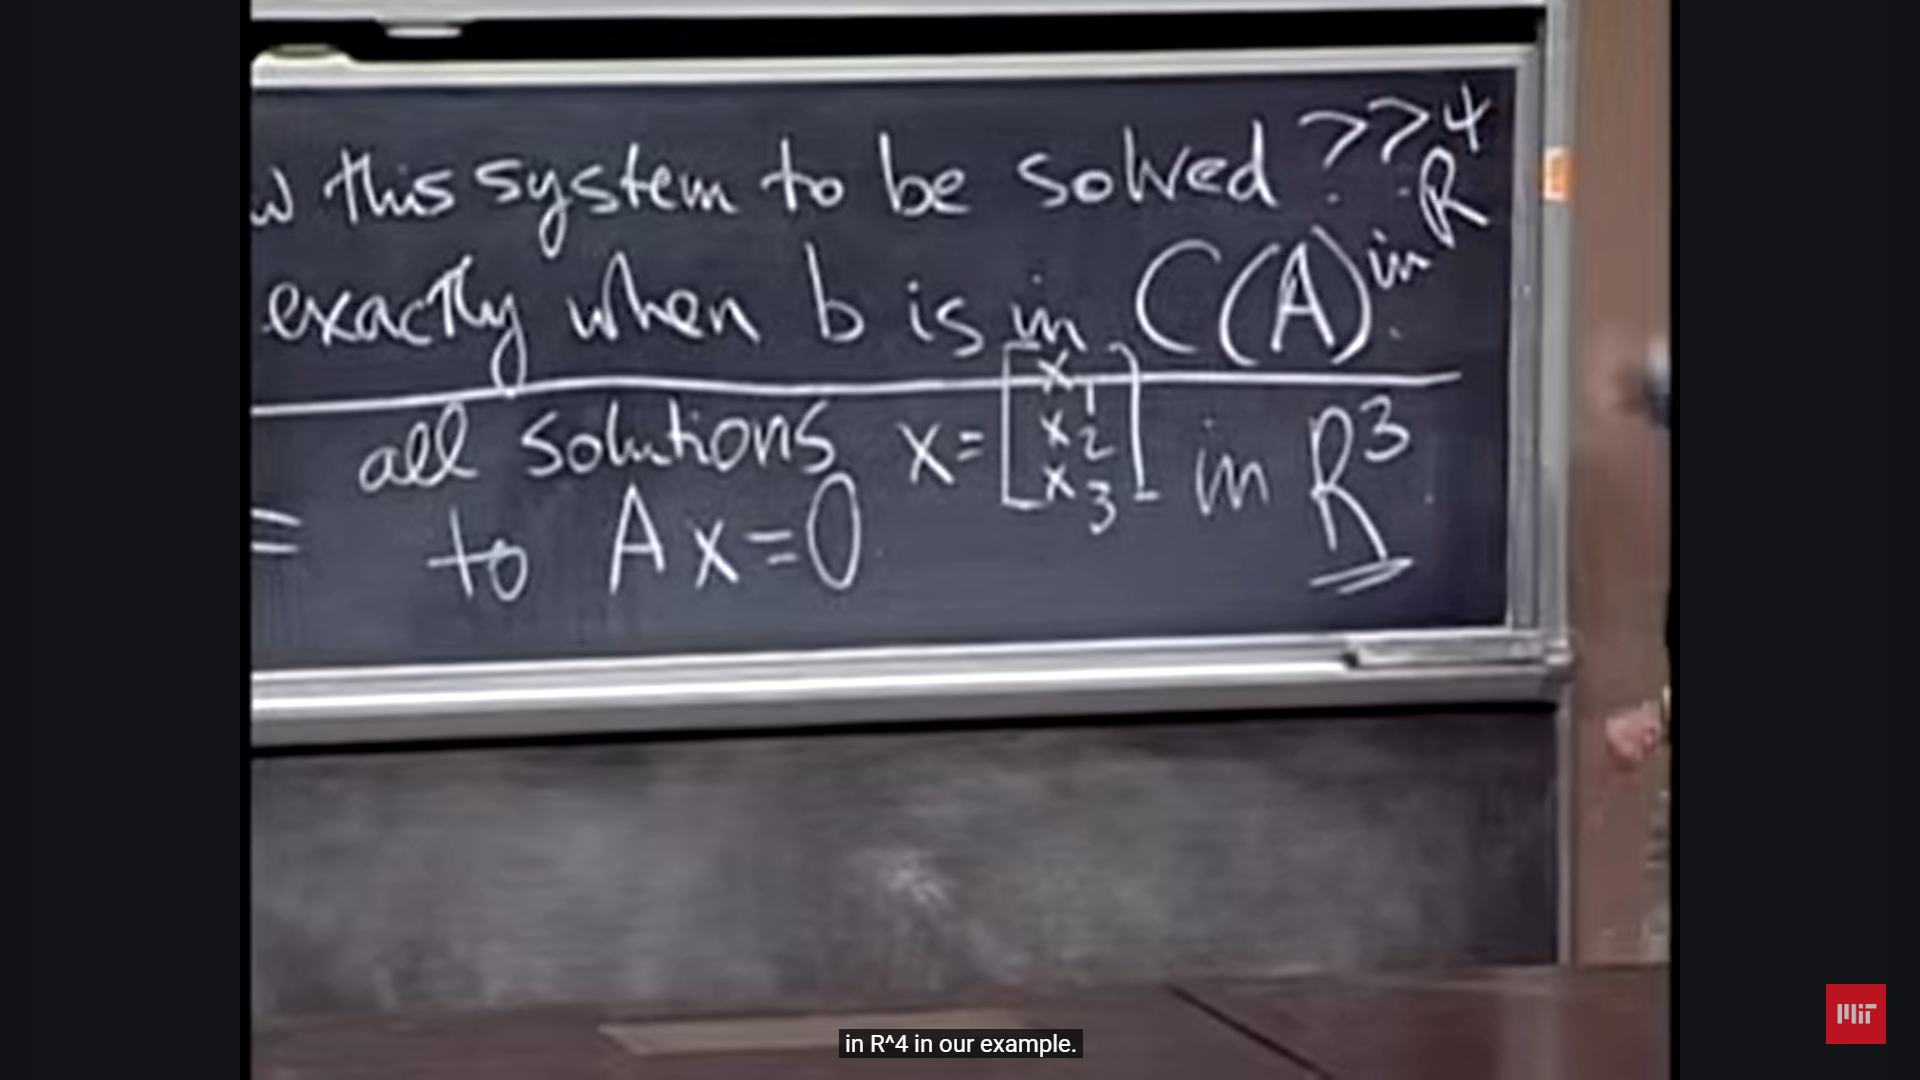 w this system to be solved ??
exactly when b is in C(A) in R^4.
all solutions x = [x1 x2 x3] in R^3
= to Ax=0
in R^4 in our example.
MIT